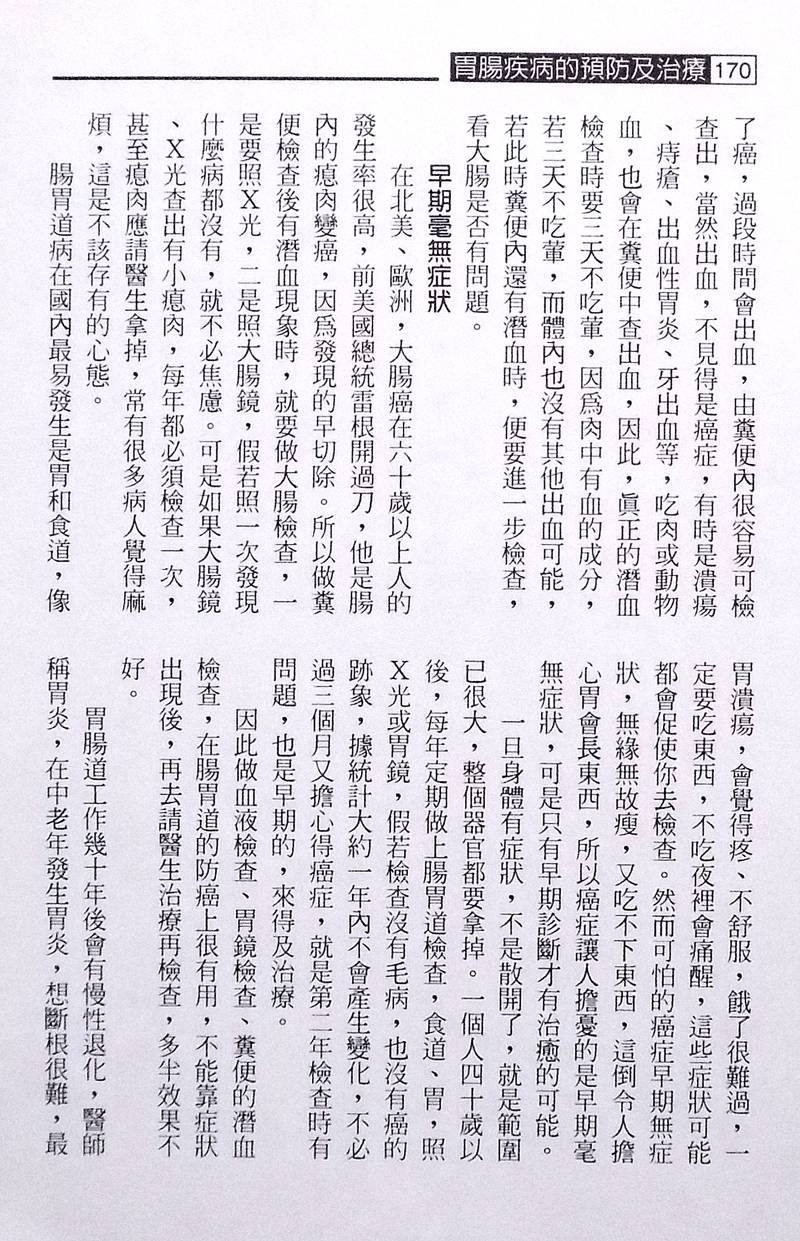 胃腸疾病的預防及治療 170
了癌，過段時間會出血，由糞便內很容易可檢
查出，當然出血，不見得是癌症，有時是潰瘍
、痔瘡、出血性胃炎、牙出血等，吃肉或動物
血，也會在糞便中查出血，因此，眞正的潛血
檢查時要三天不吃葷，因爲肉中有血的成分，
若三天不吃葷，而體內也沒有其他出血可能，
若此時糞便內還有潛血時，便要進一步檢查，
看大腸是否有問題。
早期毫無症狀
在北美、歐洲，大腸癌在六十歲以上人的
發生率很高，前美國總統雷根開過刀，他是腸
內的瘜肉變癌，因爲發現的早切除。所以做糞
便檢查後有潛血現象時，就要做大腸檢查，一
是要照X光，二是照大腸鏡，假若照一次發現
什麼病都沒有，就不必焦慮。可是如果大腸鏡
、X光查出有小瘜肉，每年都必須檢查一次，
甚至瘜肉應請醫生拿掉，常有很多病人覺得麻
煩，這是不該存有的心態。
腸胃道病在國內最易發生是胃和食道，像
胃潰瘍，會覺得疼、不舒服，餓了很難過，一
定要吃東西，不吃夜裡會痛醒，這些症狀可能
都會促使你去檢查。然而可怕的癌症早期無症
狀，無緣無故瘦，又吃不下東西，這倒令人擔
心胃會長東西，所以癌症讓人擔憂的是早期毫
無症狀，可是只有早期診斷才有治癒的可能。
一旦身體有症狀，不是散開了，就是範圍
已很大，整個器官都要拿掉。一個人四十歲以
後，每年定期做上腸胃道檢查，食道、胃，照
X光或胃鏡，假若檢查沒有毛病，也沒有癌的
跡象，據統計大約一年內不會產生變化，不必
過三個月又擔心得癌症，就是第二年檢查時有
問題，也是早期的，來得及治療。
因此做血液檢查、胃鏡檢查、糞便的潛血
檢查，在腸胃道的防癌上很有用，不能靠症狀
出現後，再去請醫生治療再檢查，多半效果不
好。
胃腸道工作幾十年後會有慢性退化，醫師
稱胃炎，在中老年發生胃炎，想斷根很難，最